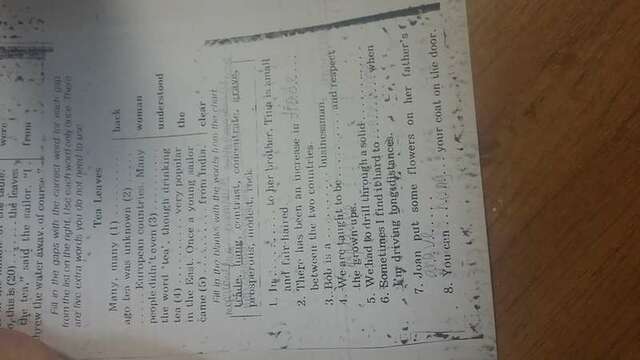 were
o, this is (20) ..... the leaves
the tea," said the sailor. "I from
threw the water away, of course."
Fill in the gaps with the correct word for each gap
from the list on the right. Use each word only once. There
are five extra words you do not need to use.
Tea Leaves
Many, many (1) ..... back
ago tea was unknown (2) .....
..... European countries. Many woman
people didn't even (3) .....
the word 'tea', though drinking understood
tea (4) ..... very popular
in the East. Once a young sailor the
came (5) ..... from India. clear
Fill in the blanks with the words from the chart.
trade, hang, contrast, concentrate, grave,
prosperous, modest, rock
1. In ..... to her brother, Tina is small
and fair-haired
2. There has been an increase in trade .....
between the two countries.
3. Bob is a ..... businessman.
4. We are taught to be ..... and respect
the grown-ups.
5. We had to drill through a solid .....
6. Sometimes I find it hard to ..... when
I'm driving long distances.
7. Joan put some flowers on her father's
8. You can ..... your coat on the door.